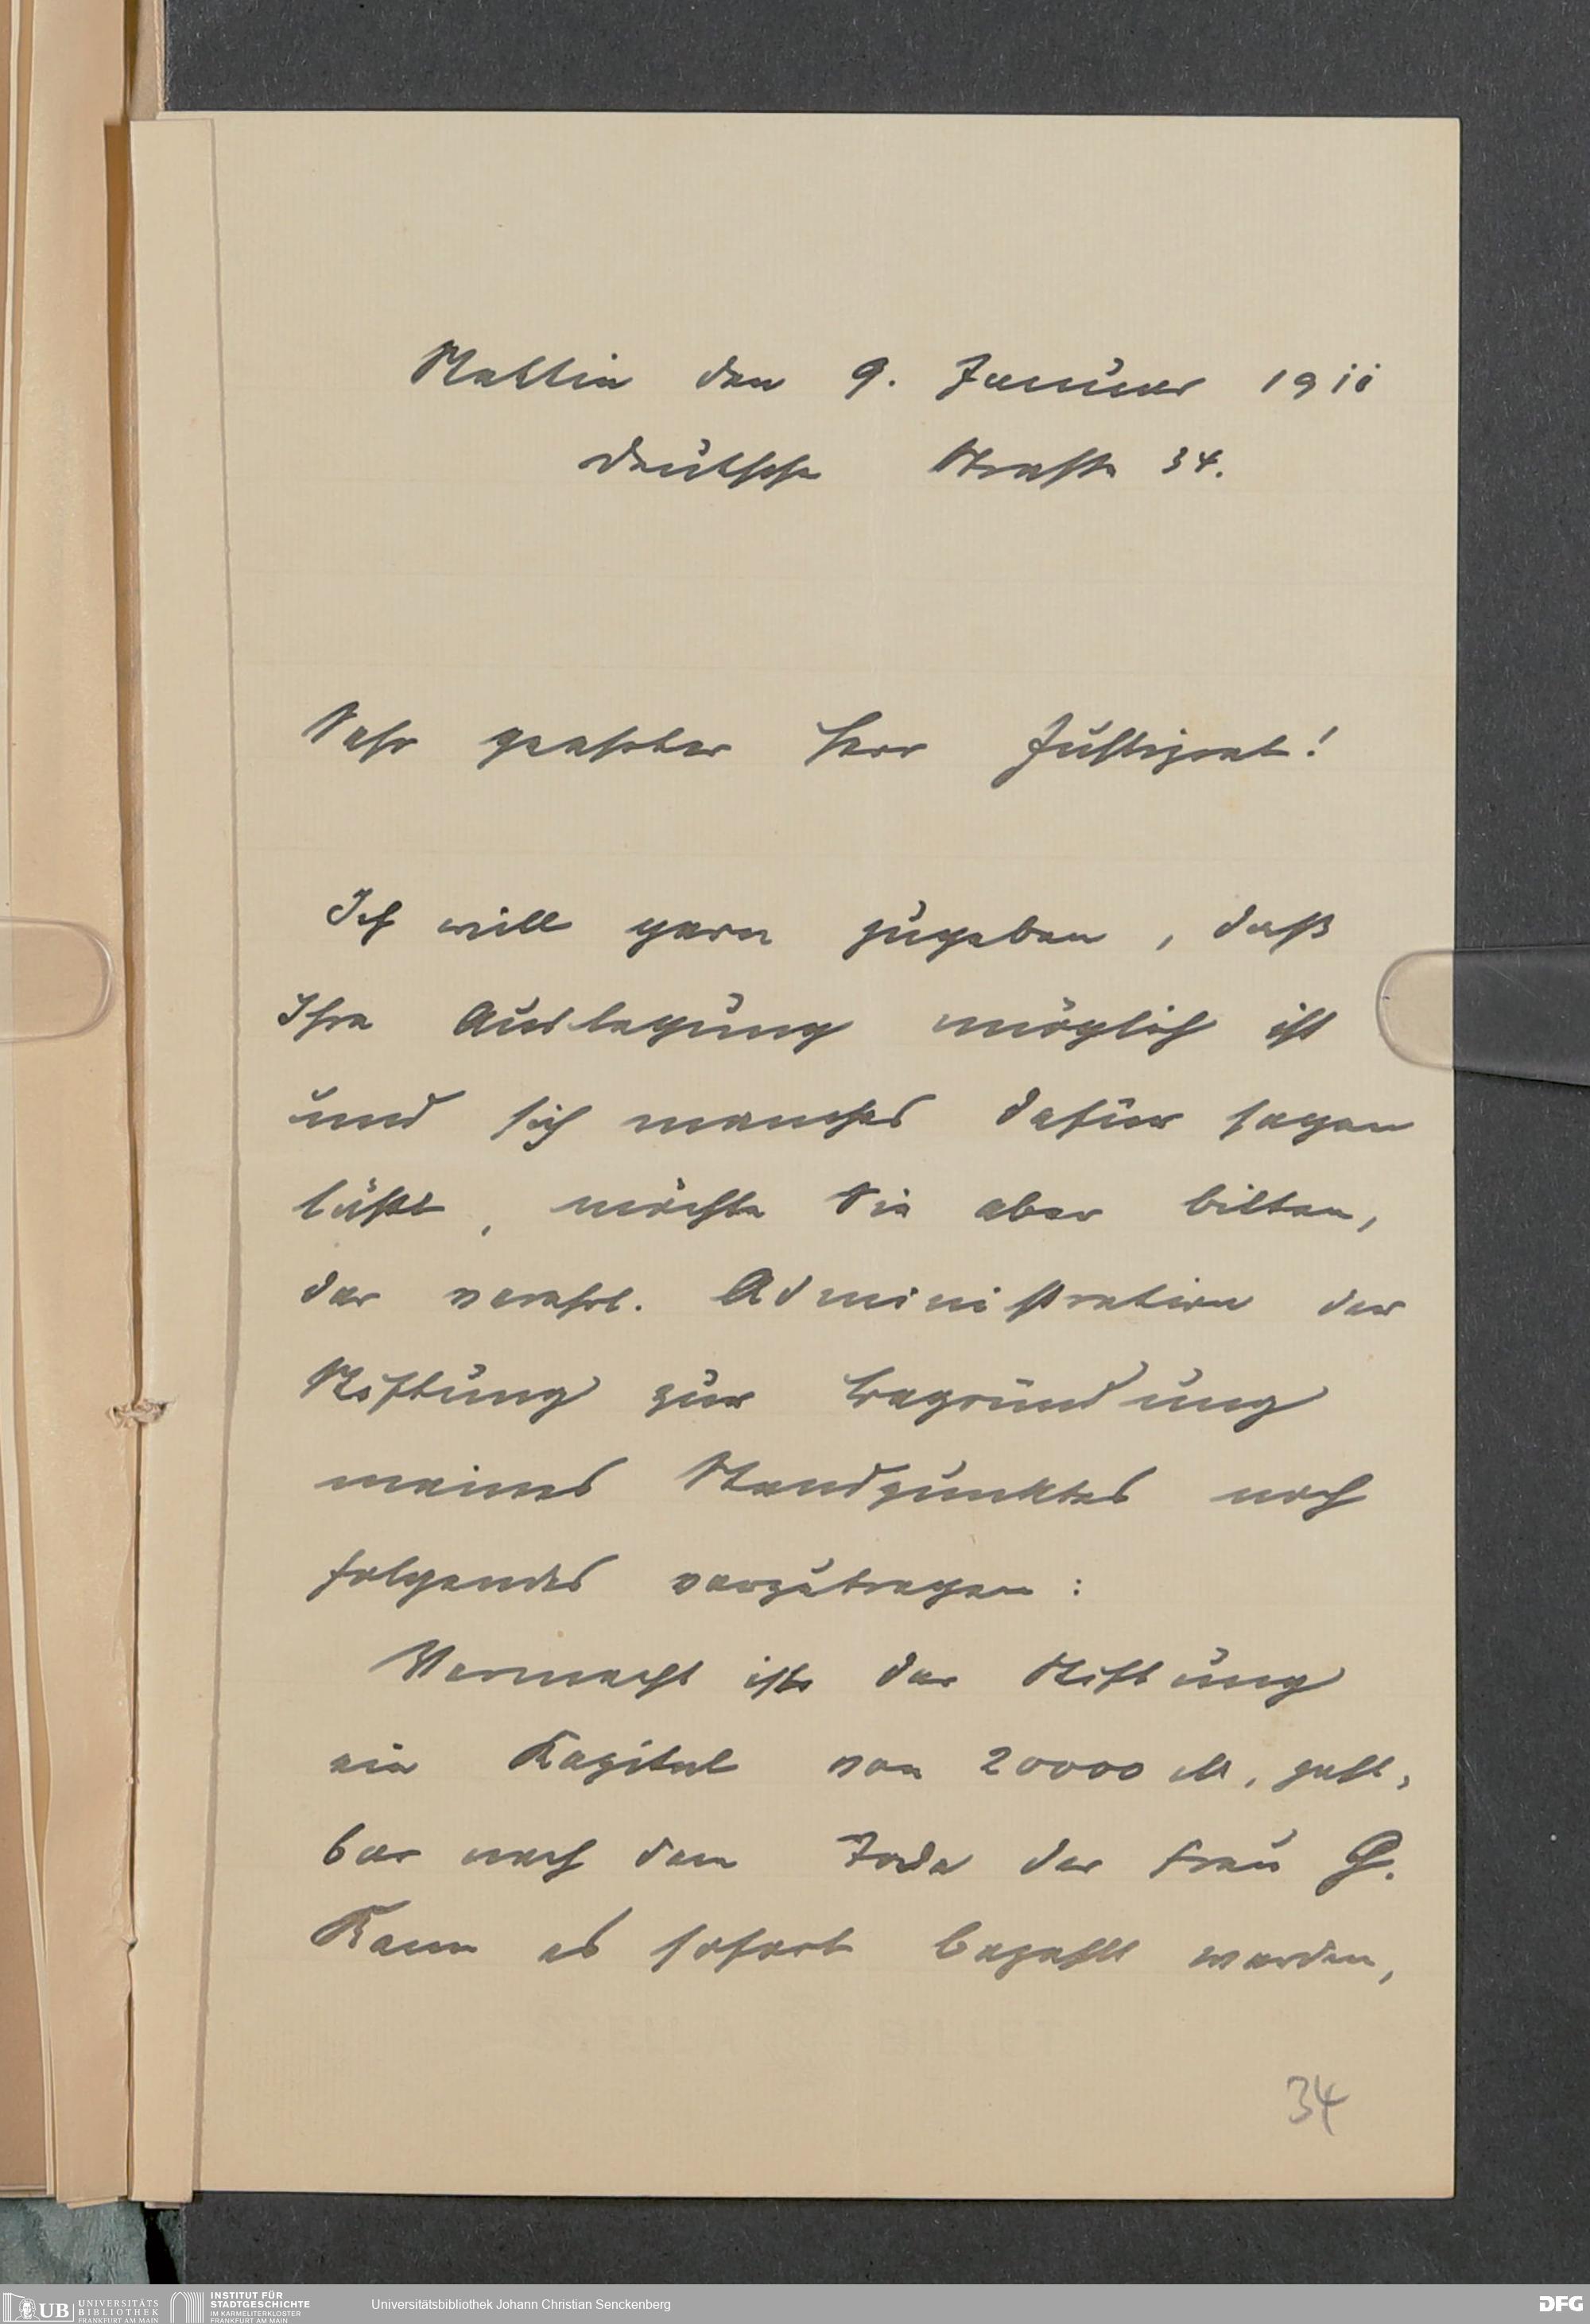 Stettin den 9. Januar 1911
Deutsche Straße 34.
Sehr geehrter Herr Justizrat!
Ich will gern zugeben, daß
Ihre Auslegung möglich ist
und sich manches dafür sagen
läßt, möchte Sie aber bitten,
der verehrl. Administration der
Stiftung zur Begründung
meines Standpunktes noch
folgendes vorzutragen:
Vermacht ist der Stiftung
ein Kapital von 20000 M, zahl-
bar nach dem Tode der Frau G.
Kann es sofort bezahlt werden,
34
UB UNIVERSITÄTS BIBLIOTHEK FRANKFURT AM MAIN
INSTITUT FÜR STADTGESCHICHTE IM KARMELITERKLOSTER FRANKFURT AM MAIN
Universitätsbibliothek Johann Christian Senckenberg
DFG